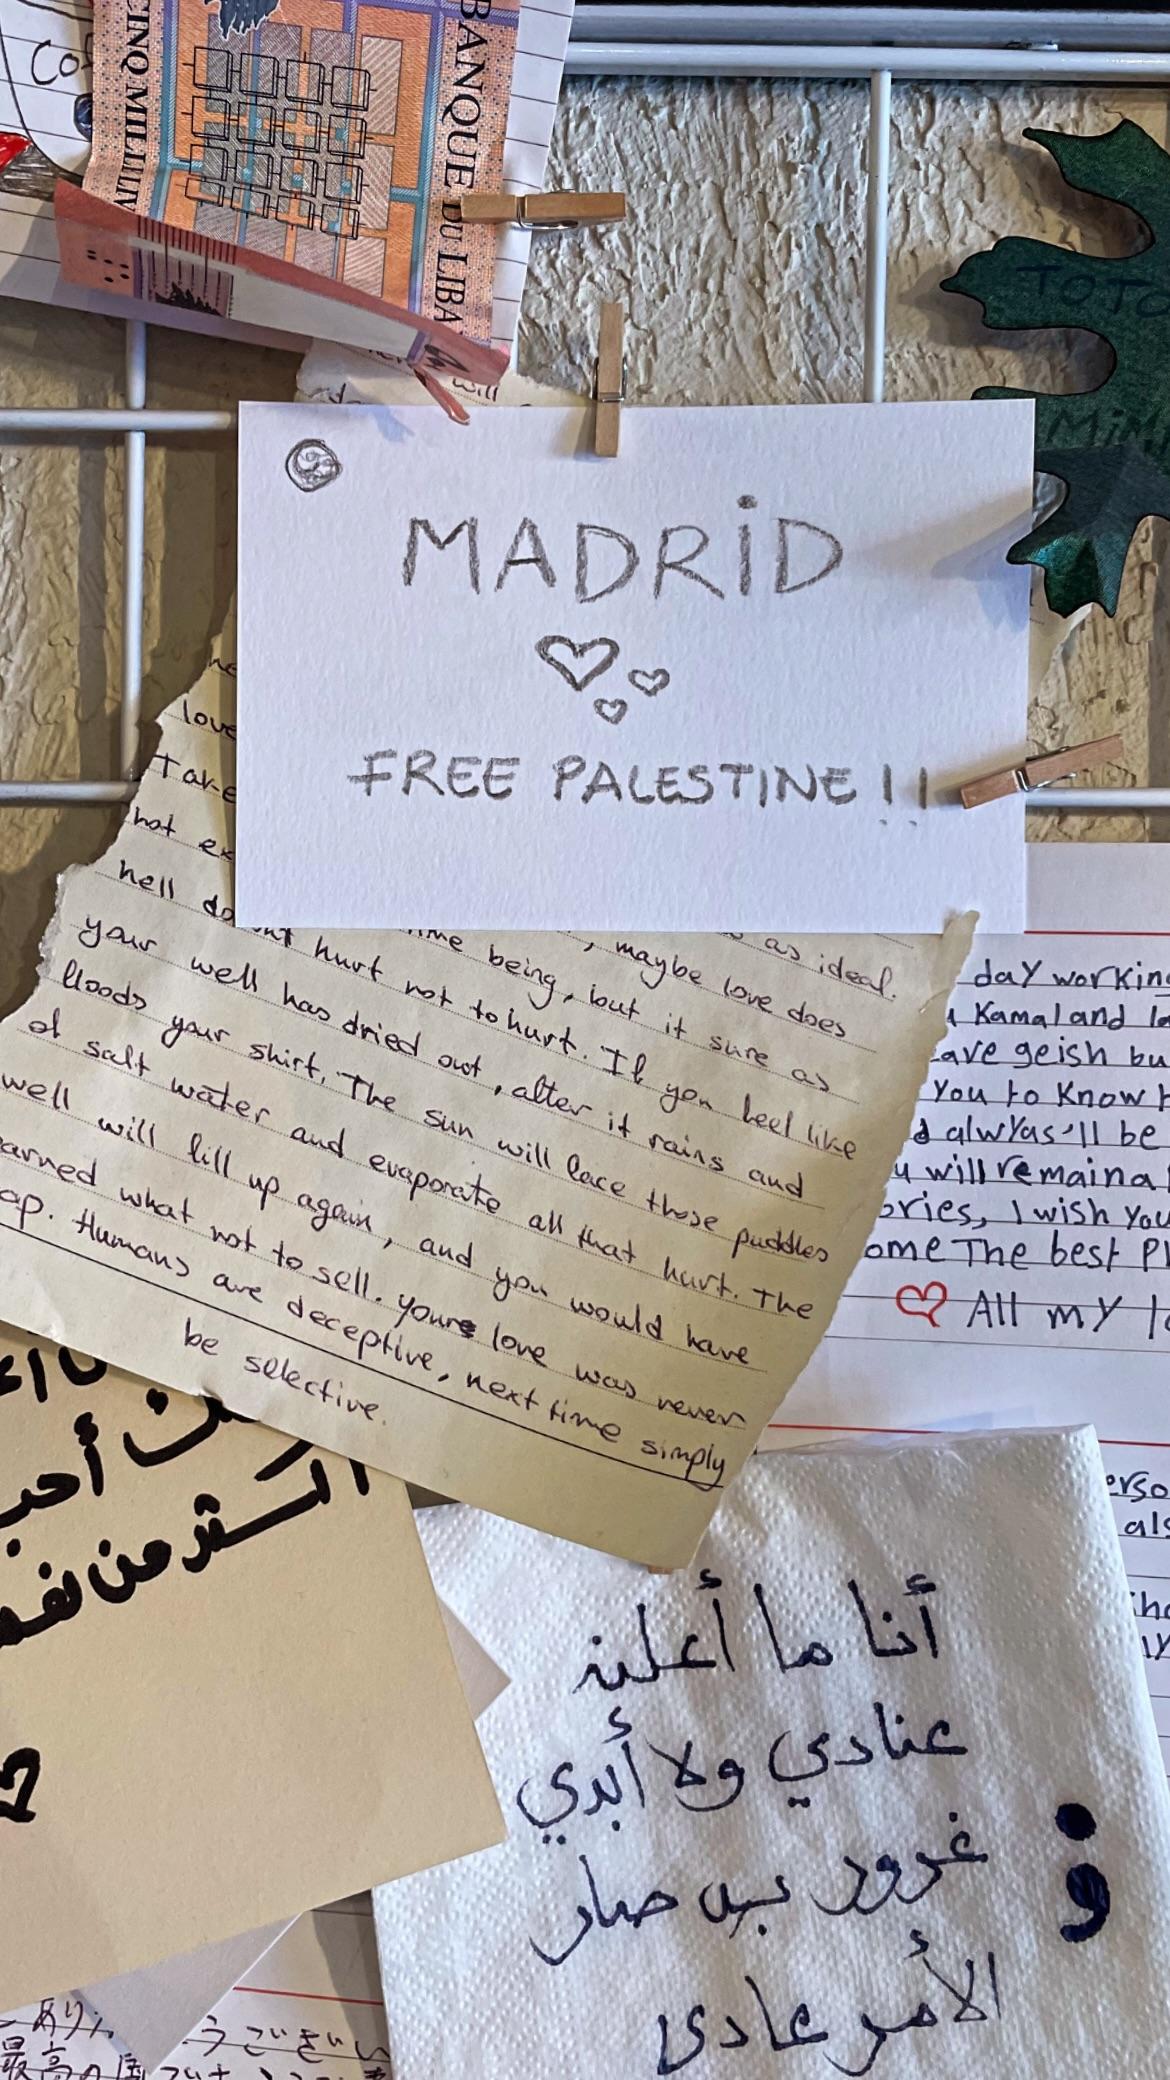 BANQUE DU LIBA
CINQ MILLE LIV
will
TOTO
MADRiD
FREE PALESTINE!!
love
Take
not ex
hell do
as ideal.
time being, maybe love does
hurt not to hurt. but it sure as
your well has dried out, If you feel like
floods your shirt. after it rains and
of salt water The sun will face those puddles
well will fill up again, and evaporate all that hurt. The
earned what not to sell. and you would have
ap. yours love was never
Humans are deceptive, next time simply
be selective.
day working
Kamal and
ave geish bu
You to Know
alwyas'll be
u will remain a
ories, I wish You
ome The best
All my
als
أكثر من
أنا ما أعلن
عنادي ولا أبدي
غرور بس صار
الأمر عادي
;
うございい
最高の国